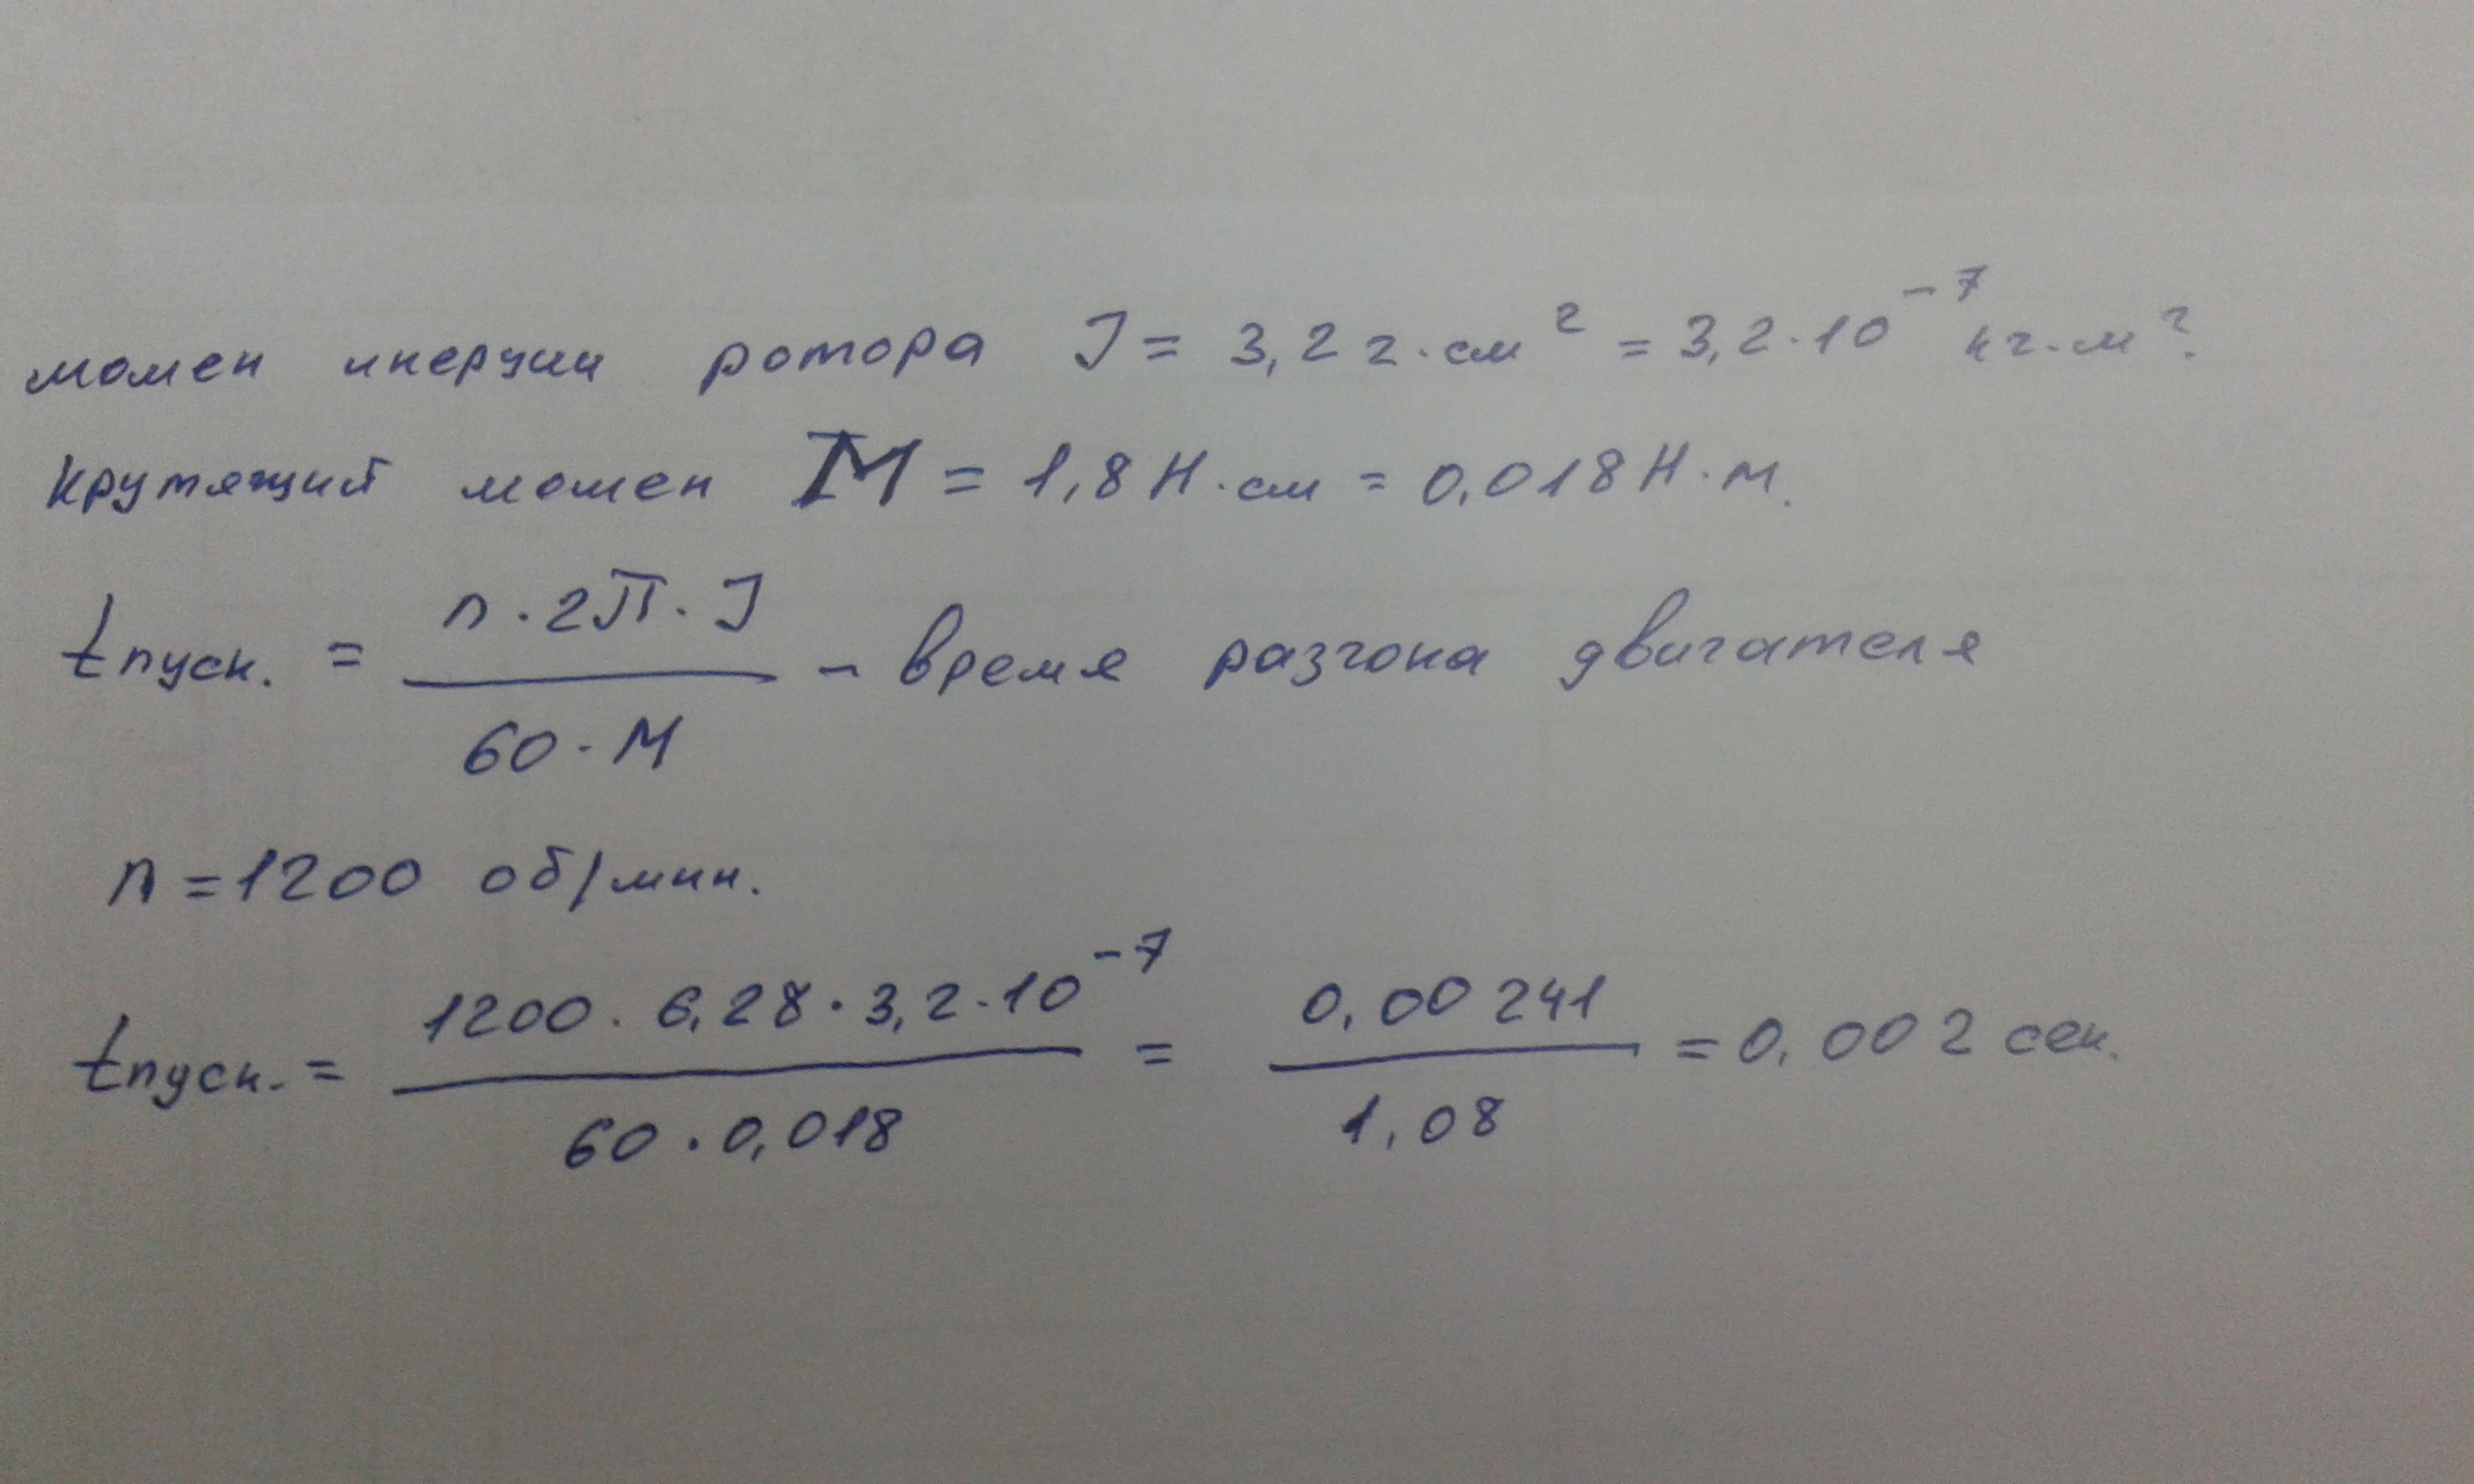 момен инерции ротора J = 3,2 г·см² = 3,2·10⁻⁷ кг·м².
крутящий момен M = 1,8 Н·см = 0,018 Н·м.
tпуск. = n·2π·J / 60·M - время разгона двигателя
n = 1200 об/мин.
tпуск. = 1200·6,28·3,2·10⁻⁷ / 60·0,018 = 0,00241 / 1,08 = 0,002 сек.